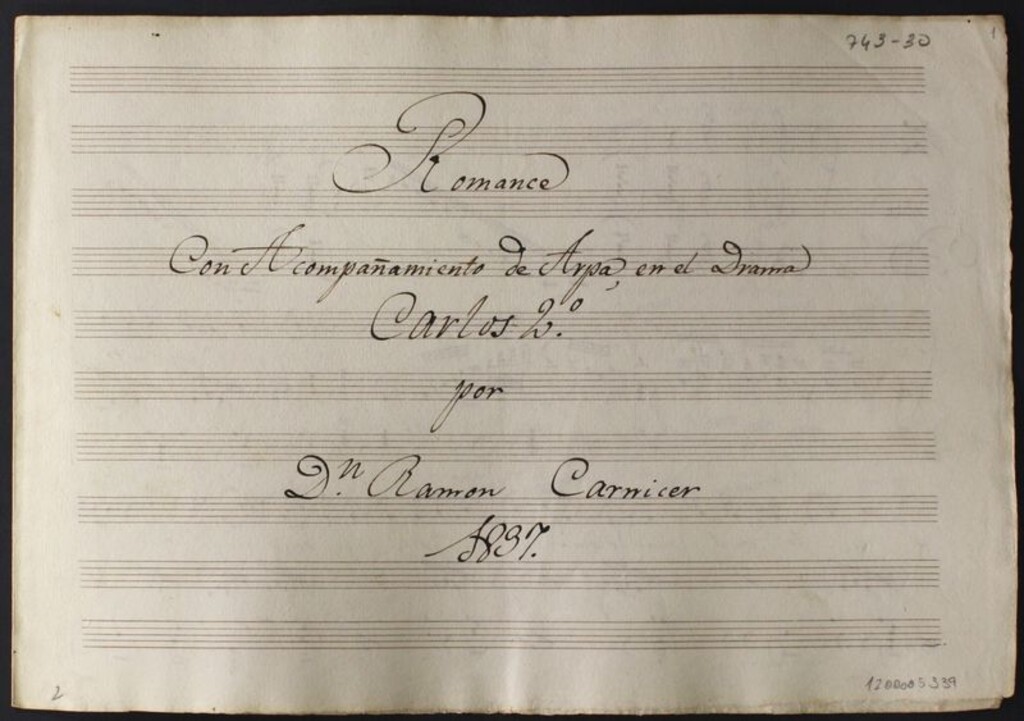 743-30
1
Romance
Con Acompañamiento de Arpa, en el Drama
Carlos 2.º
por
D.n Ramon Carnicer
1837.
2
1200005339